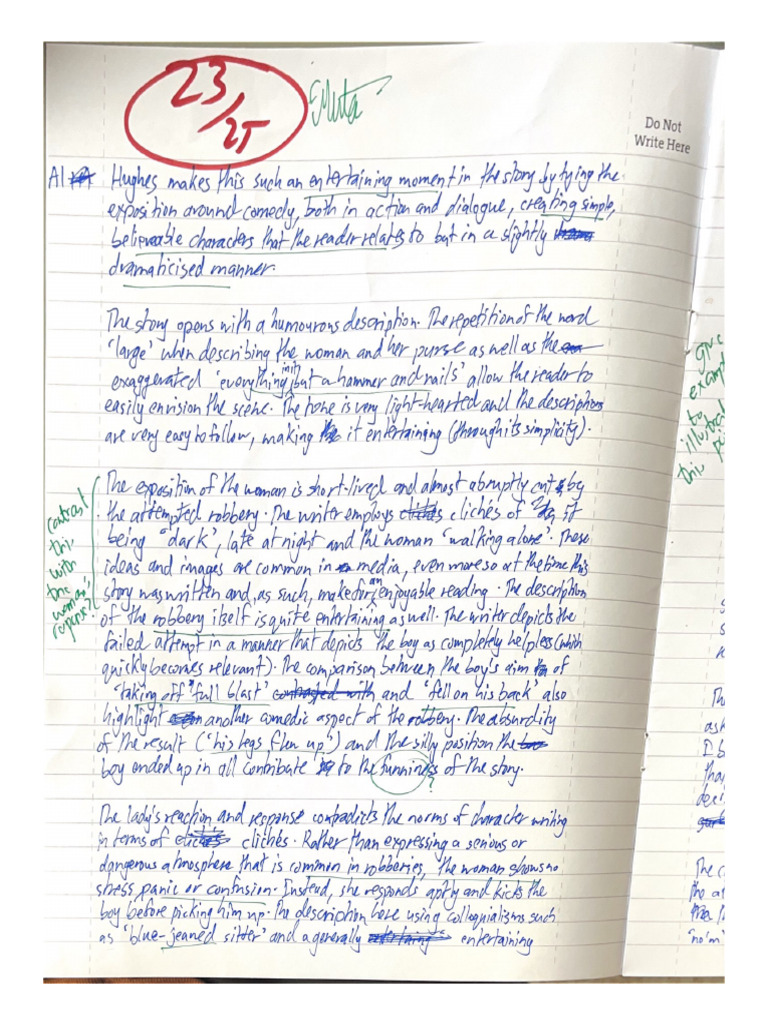 23/25
Do Not
Write Here
A1 Hughes makes this such an entertaining moment in the story by tying the
exposition around comedy, both in action and dialogue, creating simple,
believable characters that the reader relates to but in a slightly
dramaticised manner.
The story opens with a humourous description. The repetition of the word
'large' when describing the woman and her purse as well as the
exaggerated 'everything in it but a hammer and nails' allow the reader to
easily envision the scene. The tone is very light-hearted and the descriptions
are very easy to follow, making it entertaining (through its simplicity).
The exposition of the woman is short-lived and almost abruptly cut by
the attempted robbery. The writer employs clichés of it
being 'dark', late at night and the woman 'walking alone'. These
ideas and images are common in media, even more so at the time this
story was written and, as such, make for an enjoyable reading. The description
of the robbery itself is quite entertaining as well. The writer depicts the
failed attempt in a manner that depicts the boy as completely helpless (which
quickly becomes relevant). The comparison between the boy's aim of
'taking off full blast' and 'fell on his back' also
highlight another comedic aspect of the robbery. The absurdity
of the result ('his legs flew up') and the silly position the
boy ended up in all contribute to the funniness of the story.
?
The lady's reaction and response contradicts the norms of character writing
in terms of clichés. Rather than expressing a serious or
dangerous atmosphere that is common in robberies, the woman shows no
stress, panic or confusion. Instead, she responds aptly and kicks the
boy before picking him up. The description here using colloquialisms such
as 'blue-jeaned sitter' and a generally entertaining
contrast
this
with
the
woman's
give
to
this